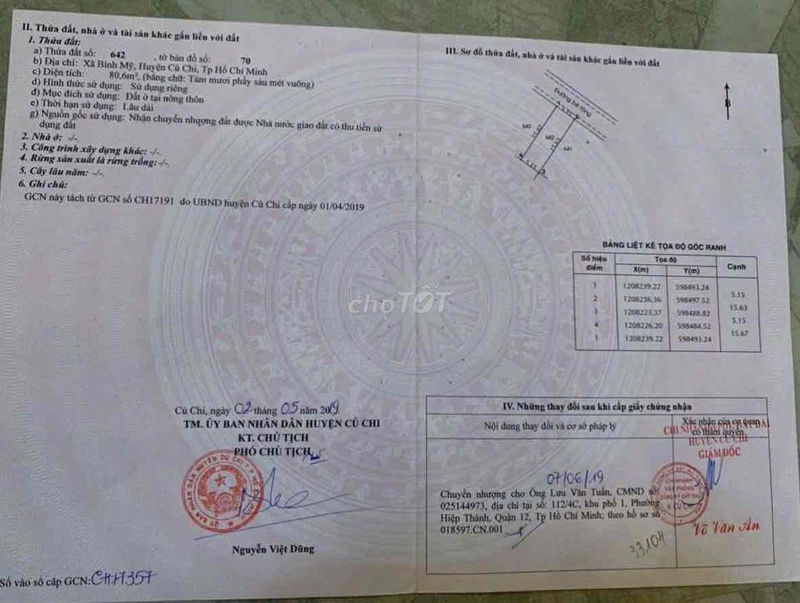 II. Thửa đất, nhà ở và tài sản khác gắn liền với đất
1. Thửa đất:
a) Thửa đất số: 642 , tờ bản đồ số: 70
b) Địa chỉ: Xã Bình Mỹ, Huyện Củ Chi, Tp Hồ Chí Minh
c) Diện tích: 80,6m², (bằng chữ: Tám mươi phẩy sáu mét vuông)
d) Hình thức sử dụng: Sử dụng riêng
đ) Mục đích sử dụng: Đất ở tại nông thôn
e) Thời hạn sử dụng: Lâu dài
g) Nguồn gốc sử dụng: Nhận chuyển nhượng đất được Nhà nước giao đất có thu tiền sử
dụng đất
2. Nhà ở: -/-
3. Công trình xây dựng khác: -/-
4. Rừng sản xuất là rừng trồng:-/-
5. Cây lâu năm: -/-
6. Ghi chú:
GCN này tách từ GCN số CH17191 do UBND huyện Củ Chi cấp ngày 01/04/2019
Củ Chi, ngày 02 tháng 05 năm 2019
TM. ỦY BAN NHÂN DÂN HUYỆN CỦ CHI
KT. CHỦ TỊCH
PHÓ CHỦ TỊCH
Nguyễn Việt Dũng
Số vào sổ cấp GCN: CH17357
III. Sơ đồ thửa đất, nhà ở và tài sản khác gắn liền với đất
Đường bê tông
B
chợTỐT
BẢNG LIỆT KÊ TỌA ĐỘ GÓC RANH
Số hiệu điểm Tọa độ Cạnh
X(m) Y(m)
1 1208239.22 598493.24
5.15
2 1208236.36 598497.52
15.63
3 1208223.37 598488.82
5.15
4 1208226.20 598484.52
15.67
1 1208239.22 598493.24
IV. Những thay đổi sau khi cấp giấy chứng nhận
Nội dung thay đổi và cơ sở pháp lý
Xác nhận của cơ quan
có thẩm quyền
HUYỆN CỦ CHI
GIÁM ĐỐC
07/06/19
Chuyển nhượng cho Ông Lưu Văn Tuấn, CMND số
025144973, địa chỉ tại số: 112/4C, khu phố 1, Phường
Hiệp Thành, Quận 12, Tp Hồ Chí Minh; theo hồ sơ số
018597.CN.001
33104
Võ Văn Ân